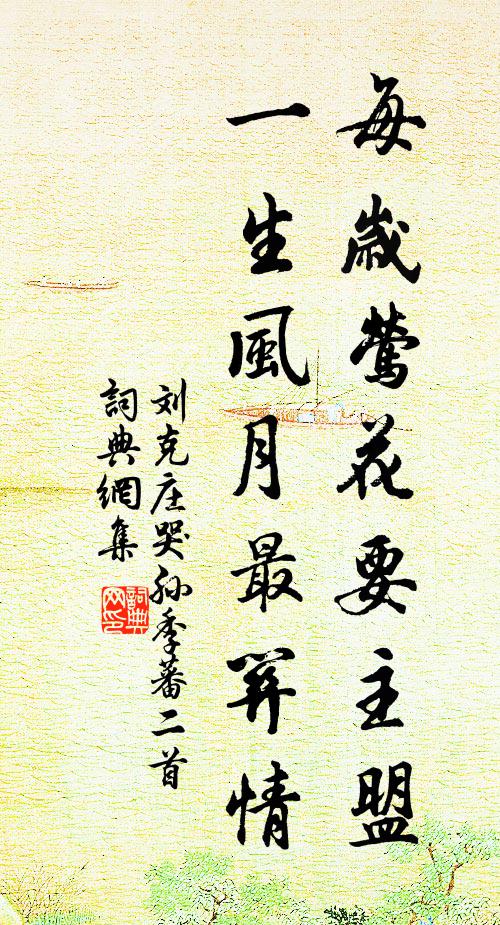 每歲鶯花要主盟
一生風月最關情
刘克庄哭孙季蕃二首
詞典網集
詞典网印